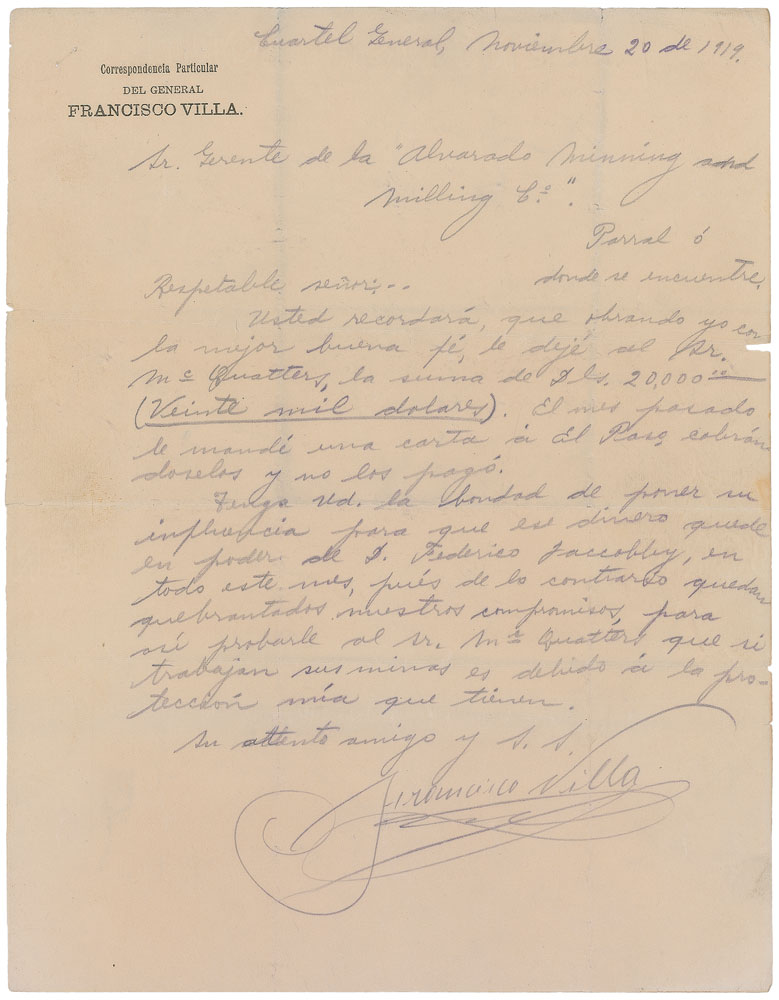 Cuartel General, Noviembre 20 de 1919.
Correspondencia Particular
DEL GENERAL
FRANCISCO VILLA.
Sr. Gerente de la "Alvarado Minning and
Milling Co.".
Parral ó
donde se encuentre.
Respetable señor:..
Usted recordará, que obrando yo con
la mejor buena fé, le dejé al Sr.
Mc Quatters, la suma de Dls. 20,000.00
(Veinte mil dolares). El mes pasado
le mandé una carta á El Paso cobrán
doselos y no los pagó.
Tenga Ud. la bondad de poner su
influencia para que ese dinero quede
en poder de D. Federico Jaccobby, en
todo este mes, pués de lo contrario quedan
quebrantados nuestros compromisos, para
así probarle al Sr. Mc Quatters que si
trabajan sus minas es debido á la pro-
tección mía que tienen.
Su attento amigo y S. S.
Francisco Villa